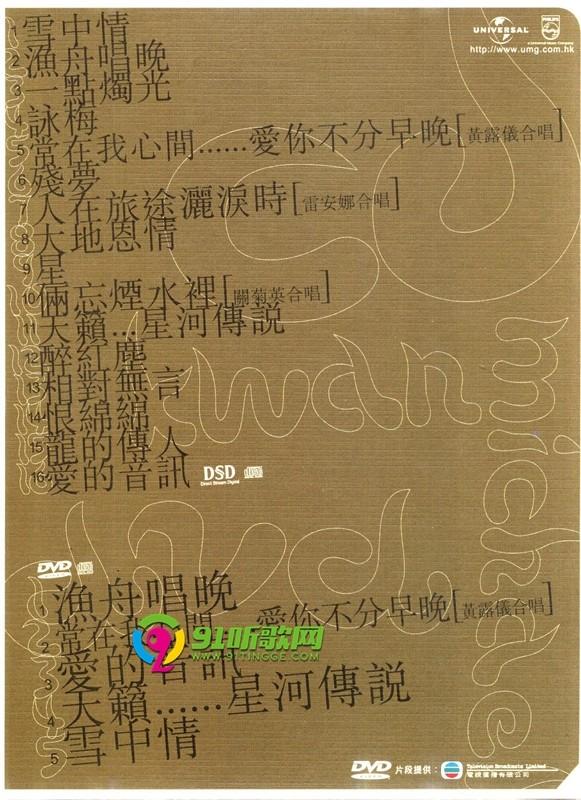 UNIVERSAL
PHILIPS
http://www.umg.com.hk
1 雪中情
2 漁舟唱晚
3 一點燭光
4 詠梅
5 常在我心間......愛你不分早晚[黃露儀合唱]
6 殘夢
7 人在旅途灑淚時[雷安娜合唱]
8 大地恩情
9 星
10 倆忘煙水裡[關菊英合唱]
11 天籟...星河傳説
12 醉紅塵
13 相對無言
14 恨綿綿
15 龍的傳人
16 愛的音訊
DSD
Direct Stream Digital
kwan
michael
DVD
1 漁舟唱晚
2 常在我心間......愛你不分早晚[黃露儀合唱]
3 愛的音訊
4 天籟......星河傳説
5 雪中情
91听歌网
WWW.91TINGGE.COM
DVD 片段提供：
Television Broadcasts Limited
電視廣播有限公司